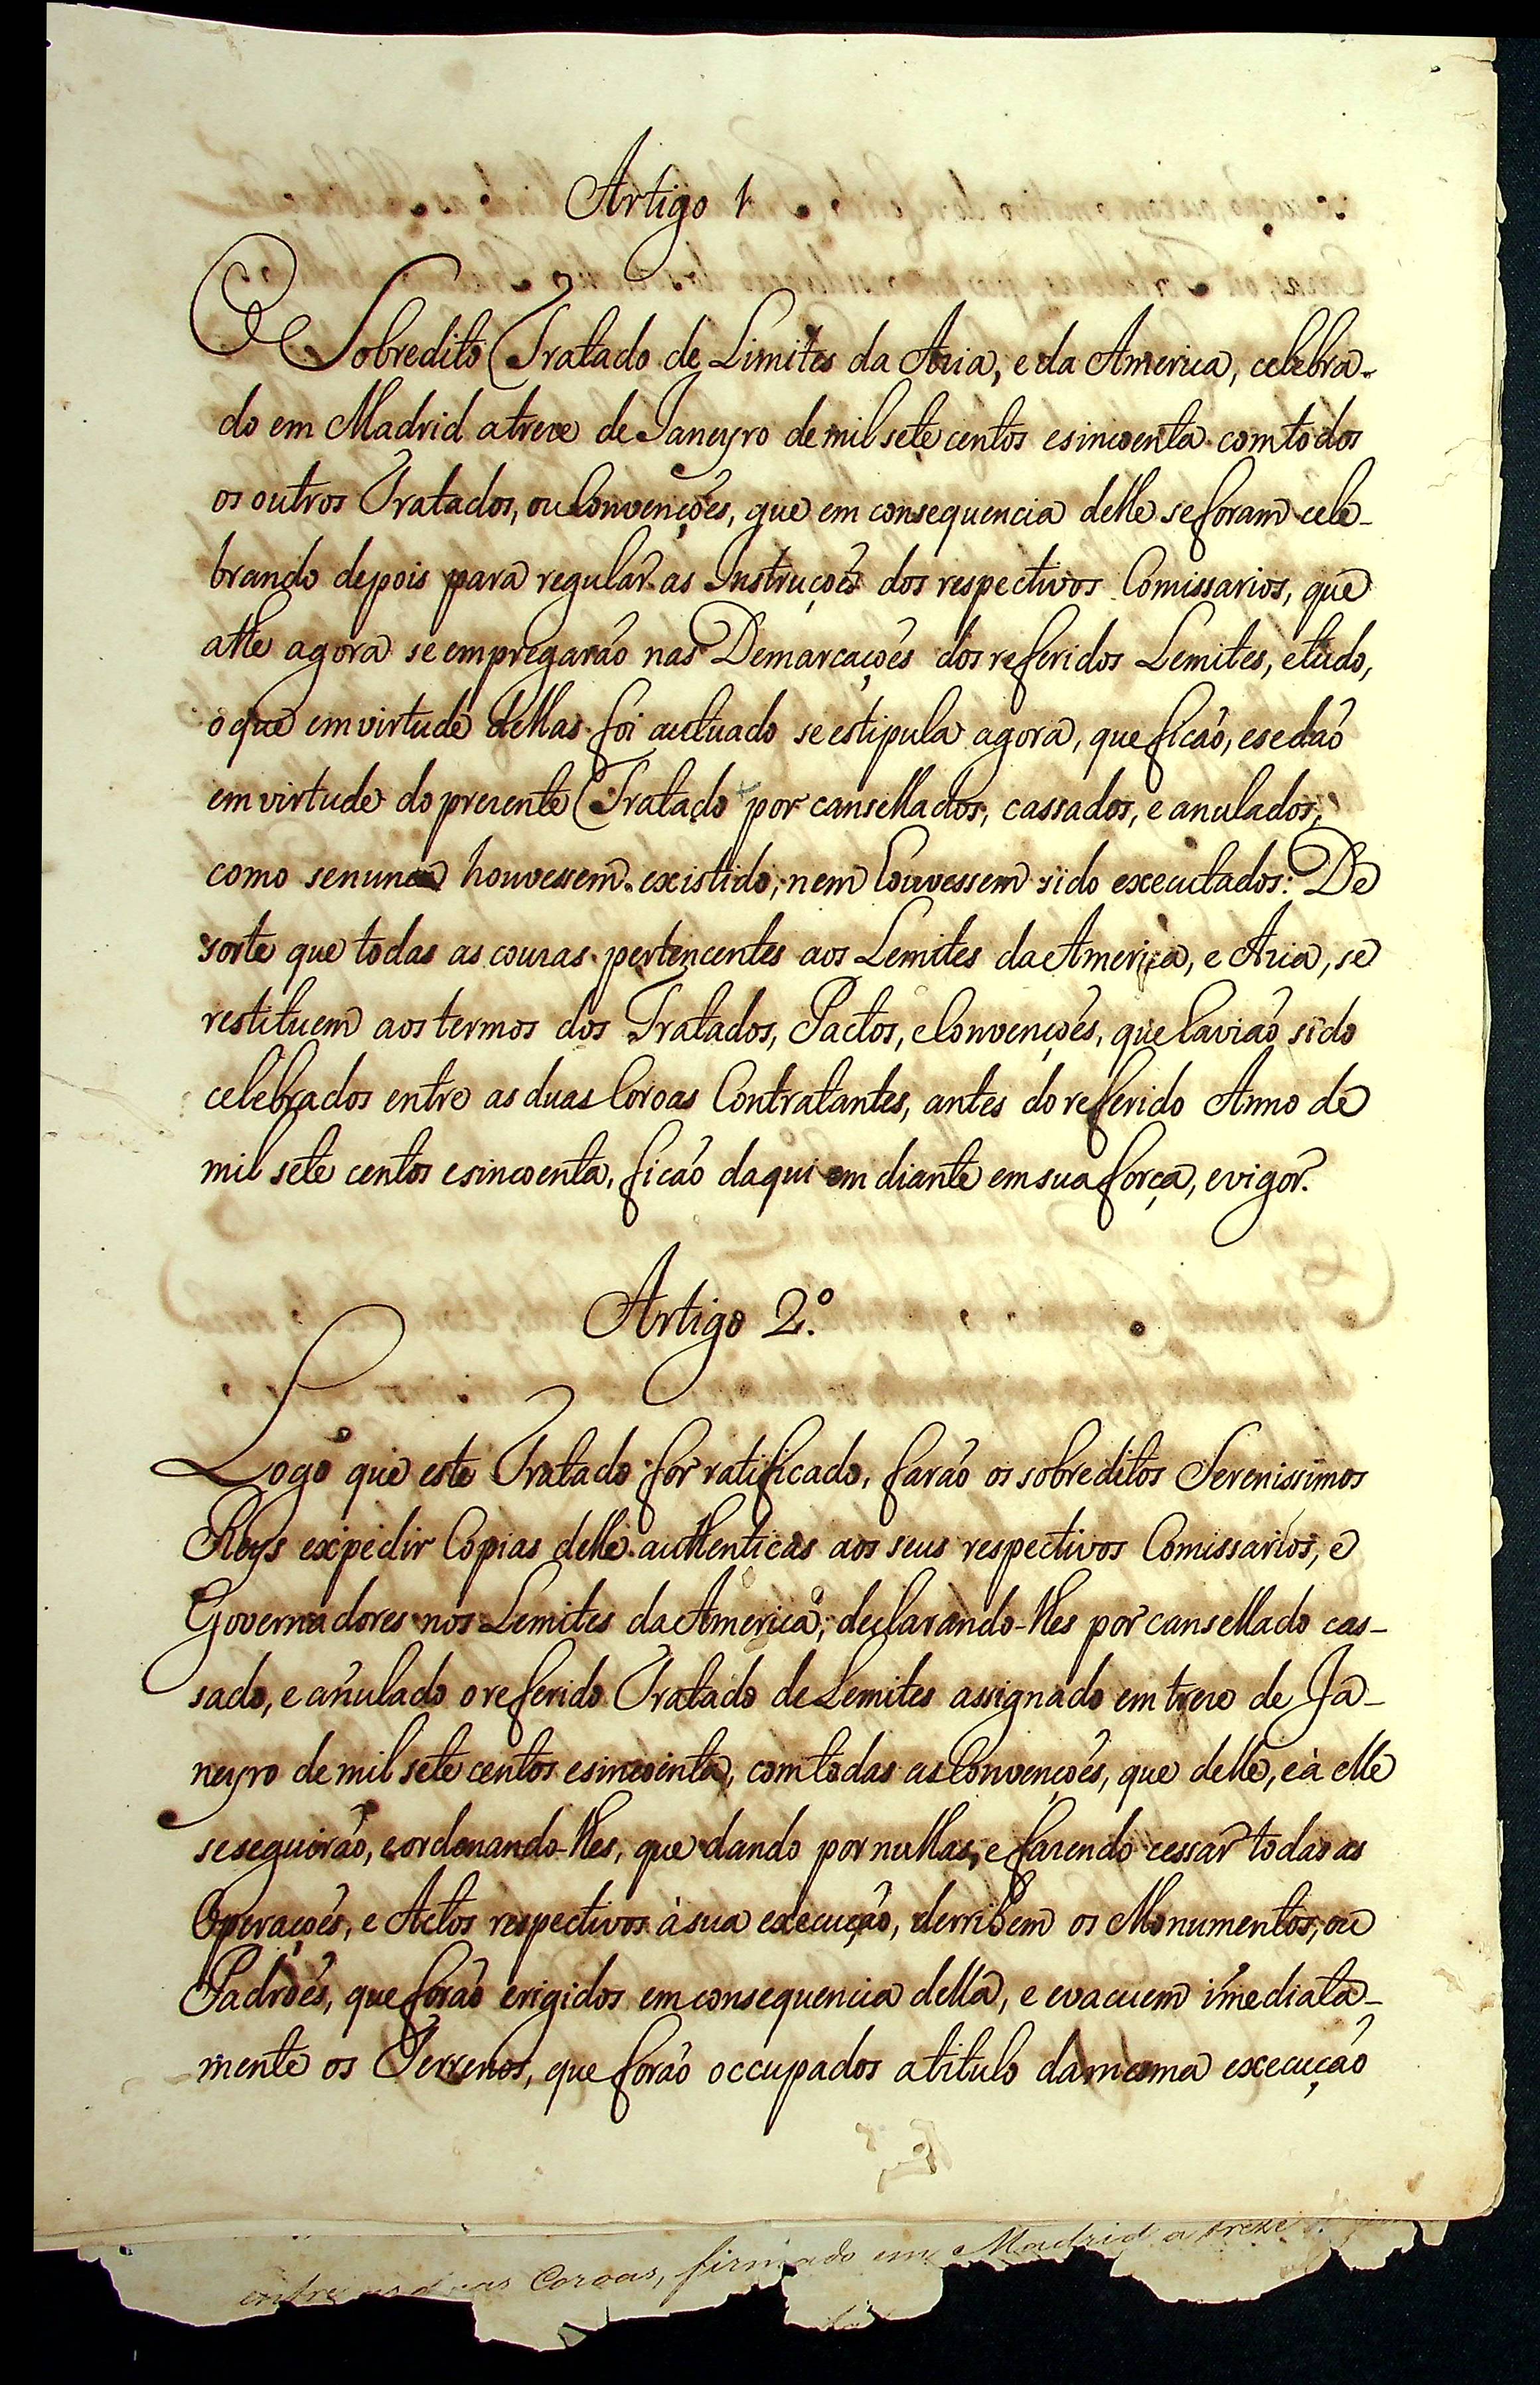 Artigo 1
O Sobredito Tratado de Limites da Azia, e da America, celebra-
do em Madrid a treze de Janeyro de mil sete centos e sincoenta com todos
os outros Tratados, ou Convenções, que em consequencia delle se foram cele-
brando depois para regular as Instruções dos respectivos Comissarios, que
athe agora se empregarão nas Demarcações dos referidos Lemites, e tudo,
o que em virtude dellas foi actuado se estipula agora, que ficão, e se dão
em virtude do prezente Tratado por cansellados, cassados, e anulados,
como se nunca houvessem existido, nem houvessem sido executados: De
sorte que todas as couzas pertencentes aos Lemites da America, e Azia, se
restituem aos termos dos Tratados, Pactos, e Convenções, que havião sido
celebrados entre as duas Coroas Contratantes, antes do referido Anno de
mil sete centos e sincoenta, ficão daqui em diante em sua força, e vigor.
Artigo 2.º
Logo que este Tratado for ratificado, farão os sobreditos Serenissimos
Reys expedir Copias delle authenticas aos seus respectivos Comissarios, e
Governadores nos Lemites da America, declarando-lhes por cansellado cas-
sado, e anulado o referido Tratado de Lemites assignado em treze de Ja-
neyro de mil sete centos e sincoenta, com todas as Convenções, que delle, e à elle
se seguirão, e ordenando-lhes, que dando por nullas, e fazendo cessar todas as
Operações, e Actos respectivos à sua execução, derribem os Monumentos, ou
Padrões, que forão erigidos em consequencia della, e evacuem imediata-
mente os Terrenos, que forão occupados a titulo da mesma execução
entre as duas Coroas, firmado em Madrid a treze